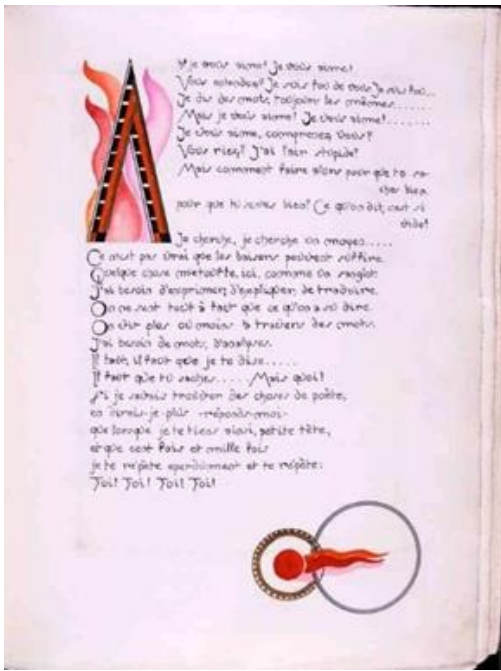 AH je vous aime! Je vous aime!
Vous entendez? Je suis fou de vous Je suis fou...
Je dis des mots, toujours les mêmes......
Mais je vous aime! Je vous aime!.......
Je vous aime, comprenez vous?
Vous riez? J'ai l'air stupide?
Mais comment faire alors pour que tu sa-
ches bien
pour que tu sentes bien? Ce qu'on dit, c'est si
vide!
Je cherche, je cherche un moyen.....
Ce n'est pas vrai que les baisers peuvent suffire.
Quelque chose m'étouffe, ici, comme un sanglot.
J'ai besoin d'exprimer, d'expliquer, de traduire.
On ne sent tout à fait que ce qu'on a su dire.
On vit plus ou moins à travers des mots.
J'ai besoin de mots, d'analyses.
Il faut, il faut que je te dise.....
Il faut que tu saches..... Mais quoi!
Si je savais trouver des choses de poète,
en dirais-je plus -réponds-moi-
que lorsque je te tiens ainsi, petite tête,
et que cent fois et mille fois
je te répète éperdument et te répète:
Toi! Toi! Toi! Toi!